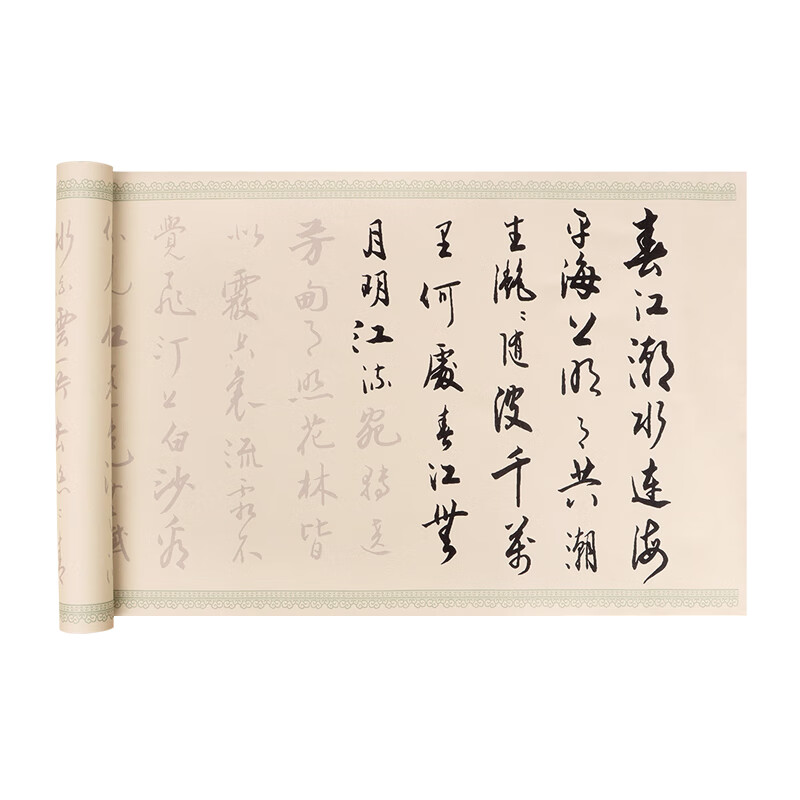 春江潮水連海
平海上明月共潮
生灧〻隨波千萬
里何處春江無
月明江流宛轉遶
芳甸月照花林皆
似霰空裏流霜不
覺飛汀上白沙看
不見江天一色
雲一片去悠〻青